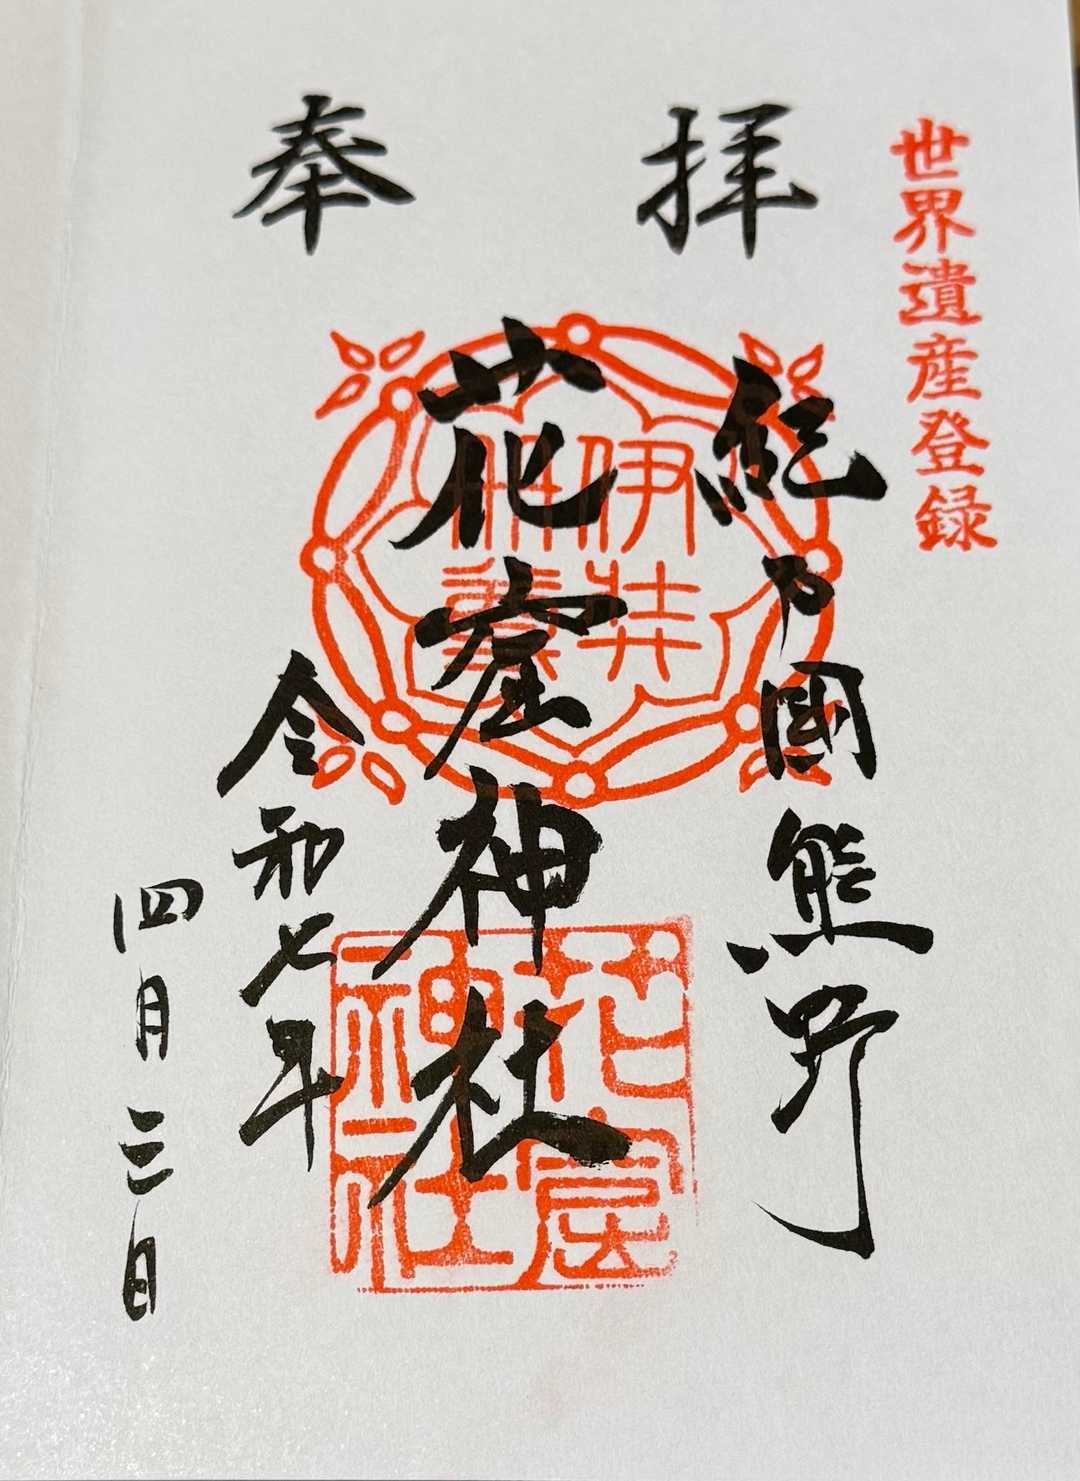 世界遺産登録
奉拝
紀乃國熊野
花窟神社
令和七年
四月三日
伊弉
冊尊
花窟
神社